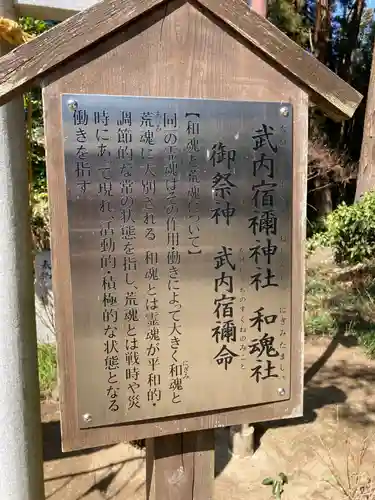 武内宿禰神社 和魂社
にぎみたましゃ
御祭神 武内宿禰命
【和魂と荒魂について】
同一の霊魂はその作用・働きによって大きく和魂と
にぎみ
荒魂に大別される 和魂とは霊魂が平和的・
あらみ
調節的な常の状態を指し、荒魂とは 災
時にあって現れ、活動的・積極的な状態となる
働きを指す